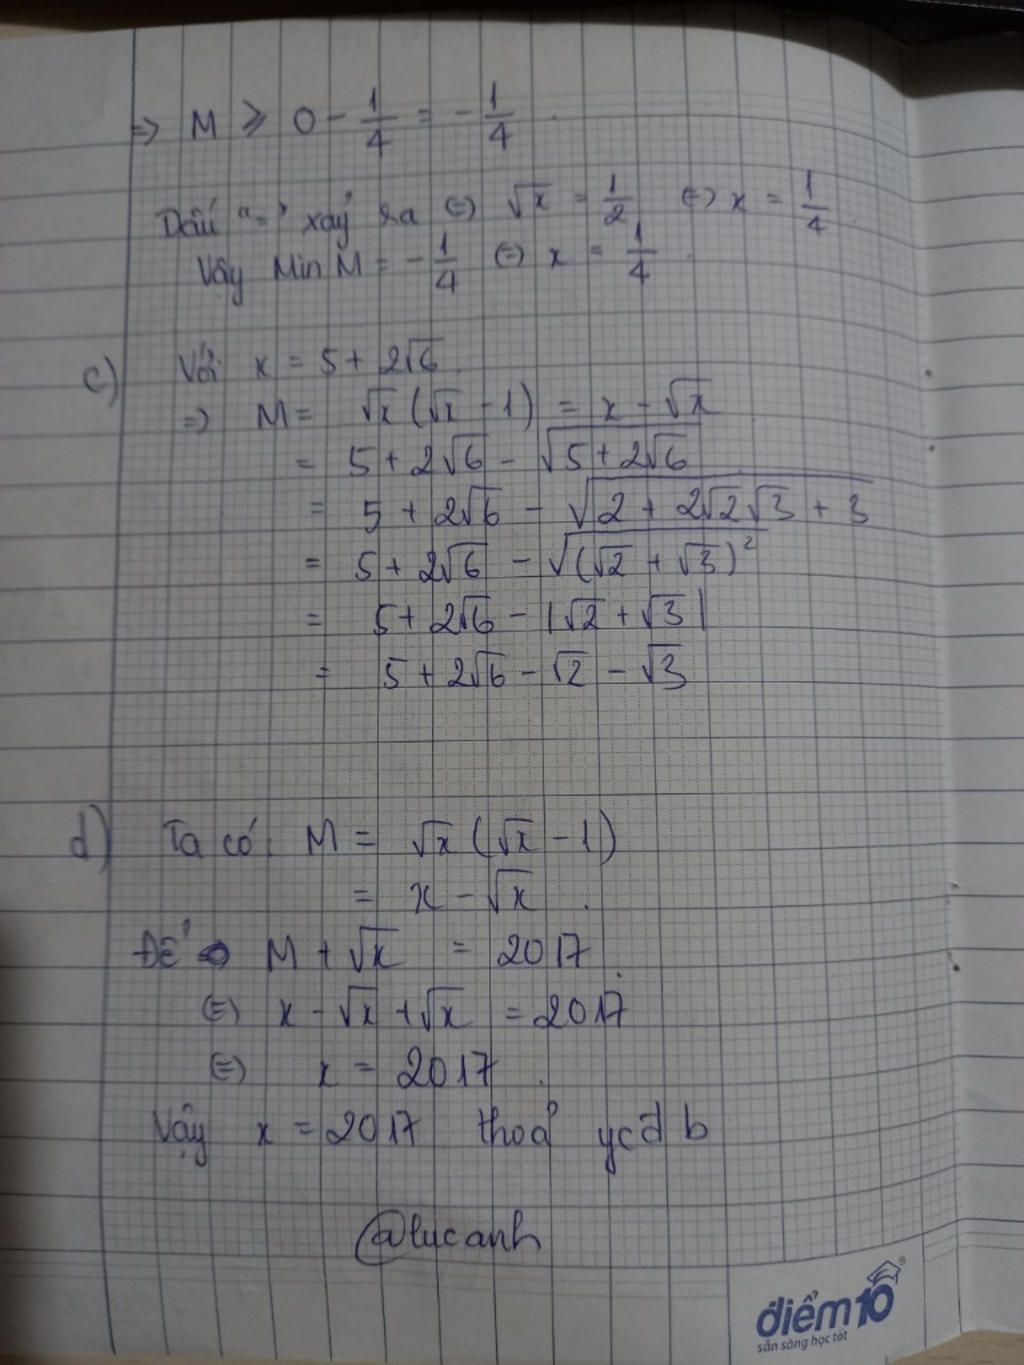 => M ≥ 0 - 1/4 = - 1/4 .
Dấu "=" xảy ra (=) √x = 1/2 (=) x = 1/4 .
Vậy Min M = - 1/4 (=) x = 1/4 .
c) Với x = 5 + 2√6 .
=> M = √x (√x - 1) = x - √x
= 5 + 2√6 - √(5 + 2√6)
= 5 + 2√6 - √(2 + 2√2√3 + 3)
= 5 + 2√6 - √((√2 + √3)²)
= 5 + 2√6 - |√2 + √3|
= 5 + 2√6 - √2 - √3
d) Ta có : M = √x (√x - 1)
= x - √x .
Để M + √x = 2017 .
(=) x - √x + √x = 2017
(=) x = 2017 .
Vậy x = 2017 thoả ycđb
@lucanh
điểm10
sẵn sàng học tốt